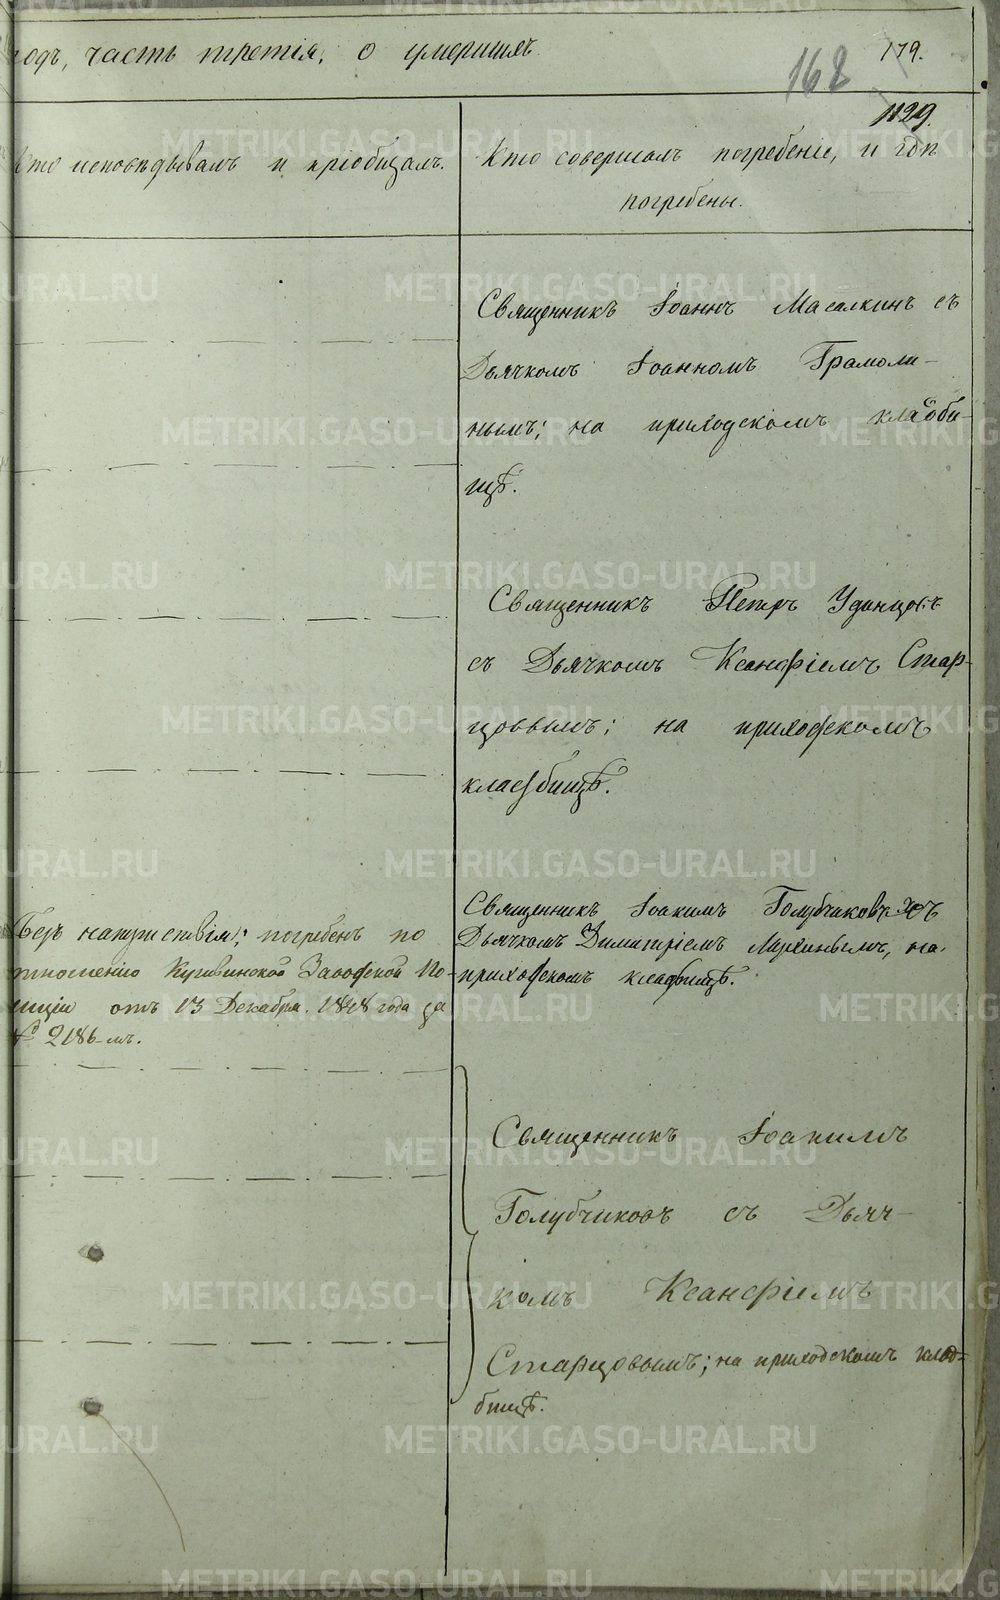 годъ, часть третія, о умершихъ.
168
179.
1129.
Кто исповѣдывалъ и пріобщалъ.
Кто совершалъ погребеніе, и гдѣ
погребены.
Священникъ Іоаннъ Масалкинъ съ
Дьячкомъ Іоанномъ Грамоли-
нымъ; на приходскомъ кладби-
щѣ.
Священникъ Петръ Удинцовъ
съ Дьячкомъ Ксанфіемъ Стар-
цовымъ; на приходскомъ
кладбищѣ.
Безъ напутствія; погребенъ по
отношенію Кушвинской Заводской По-
лиціи отъ 13 Декабря 1848 года за
№ 2186-мъ.
Священникъ Іоакимъ Голубчиковъ съ
Дьячкомъ Димитріемъ на
приходскомъ кладбищѣ.
Священникъ Іоакимъ
Голубчиковъ съ Дьяч-
комъ Ксанфіемъ
Старцовымъ; на приходскомъ клад-
бищѣ.
METRIKI.GASO-URAL.RU